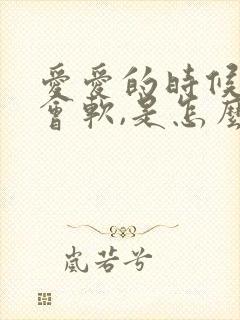 愛愛的時候
會軟,是怎麼
嵐若兮